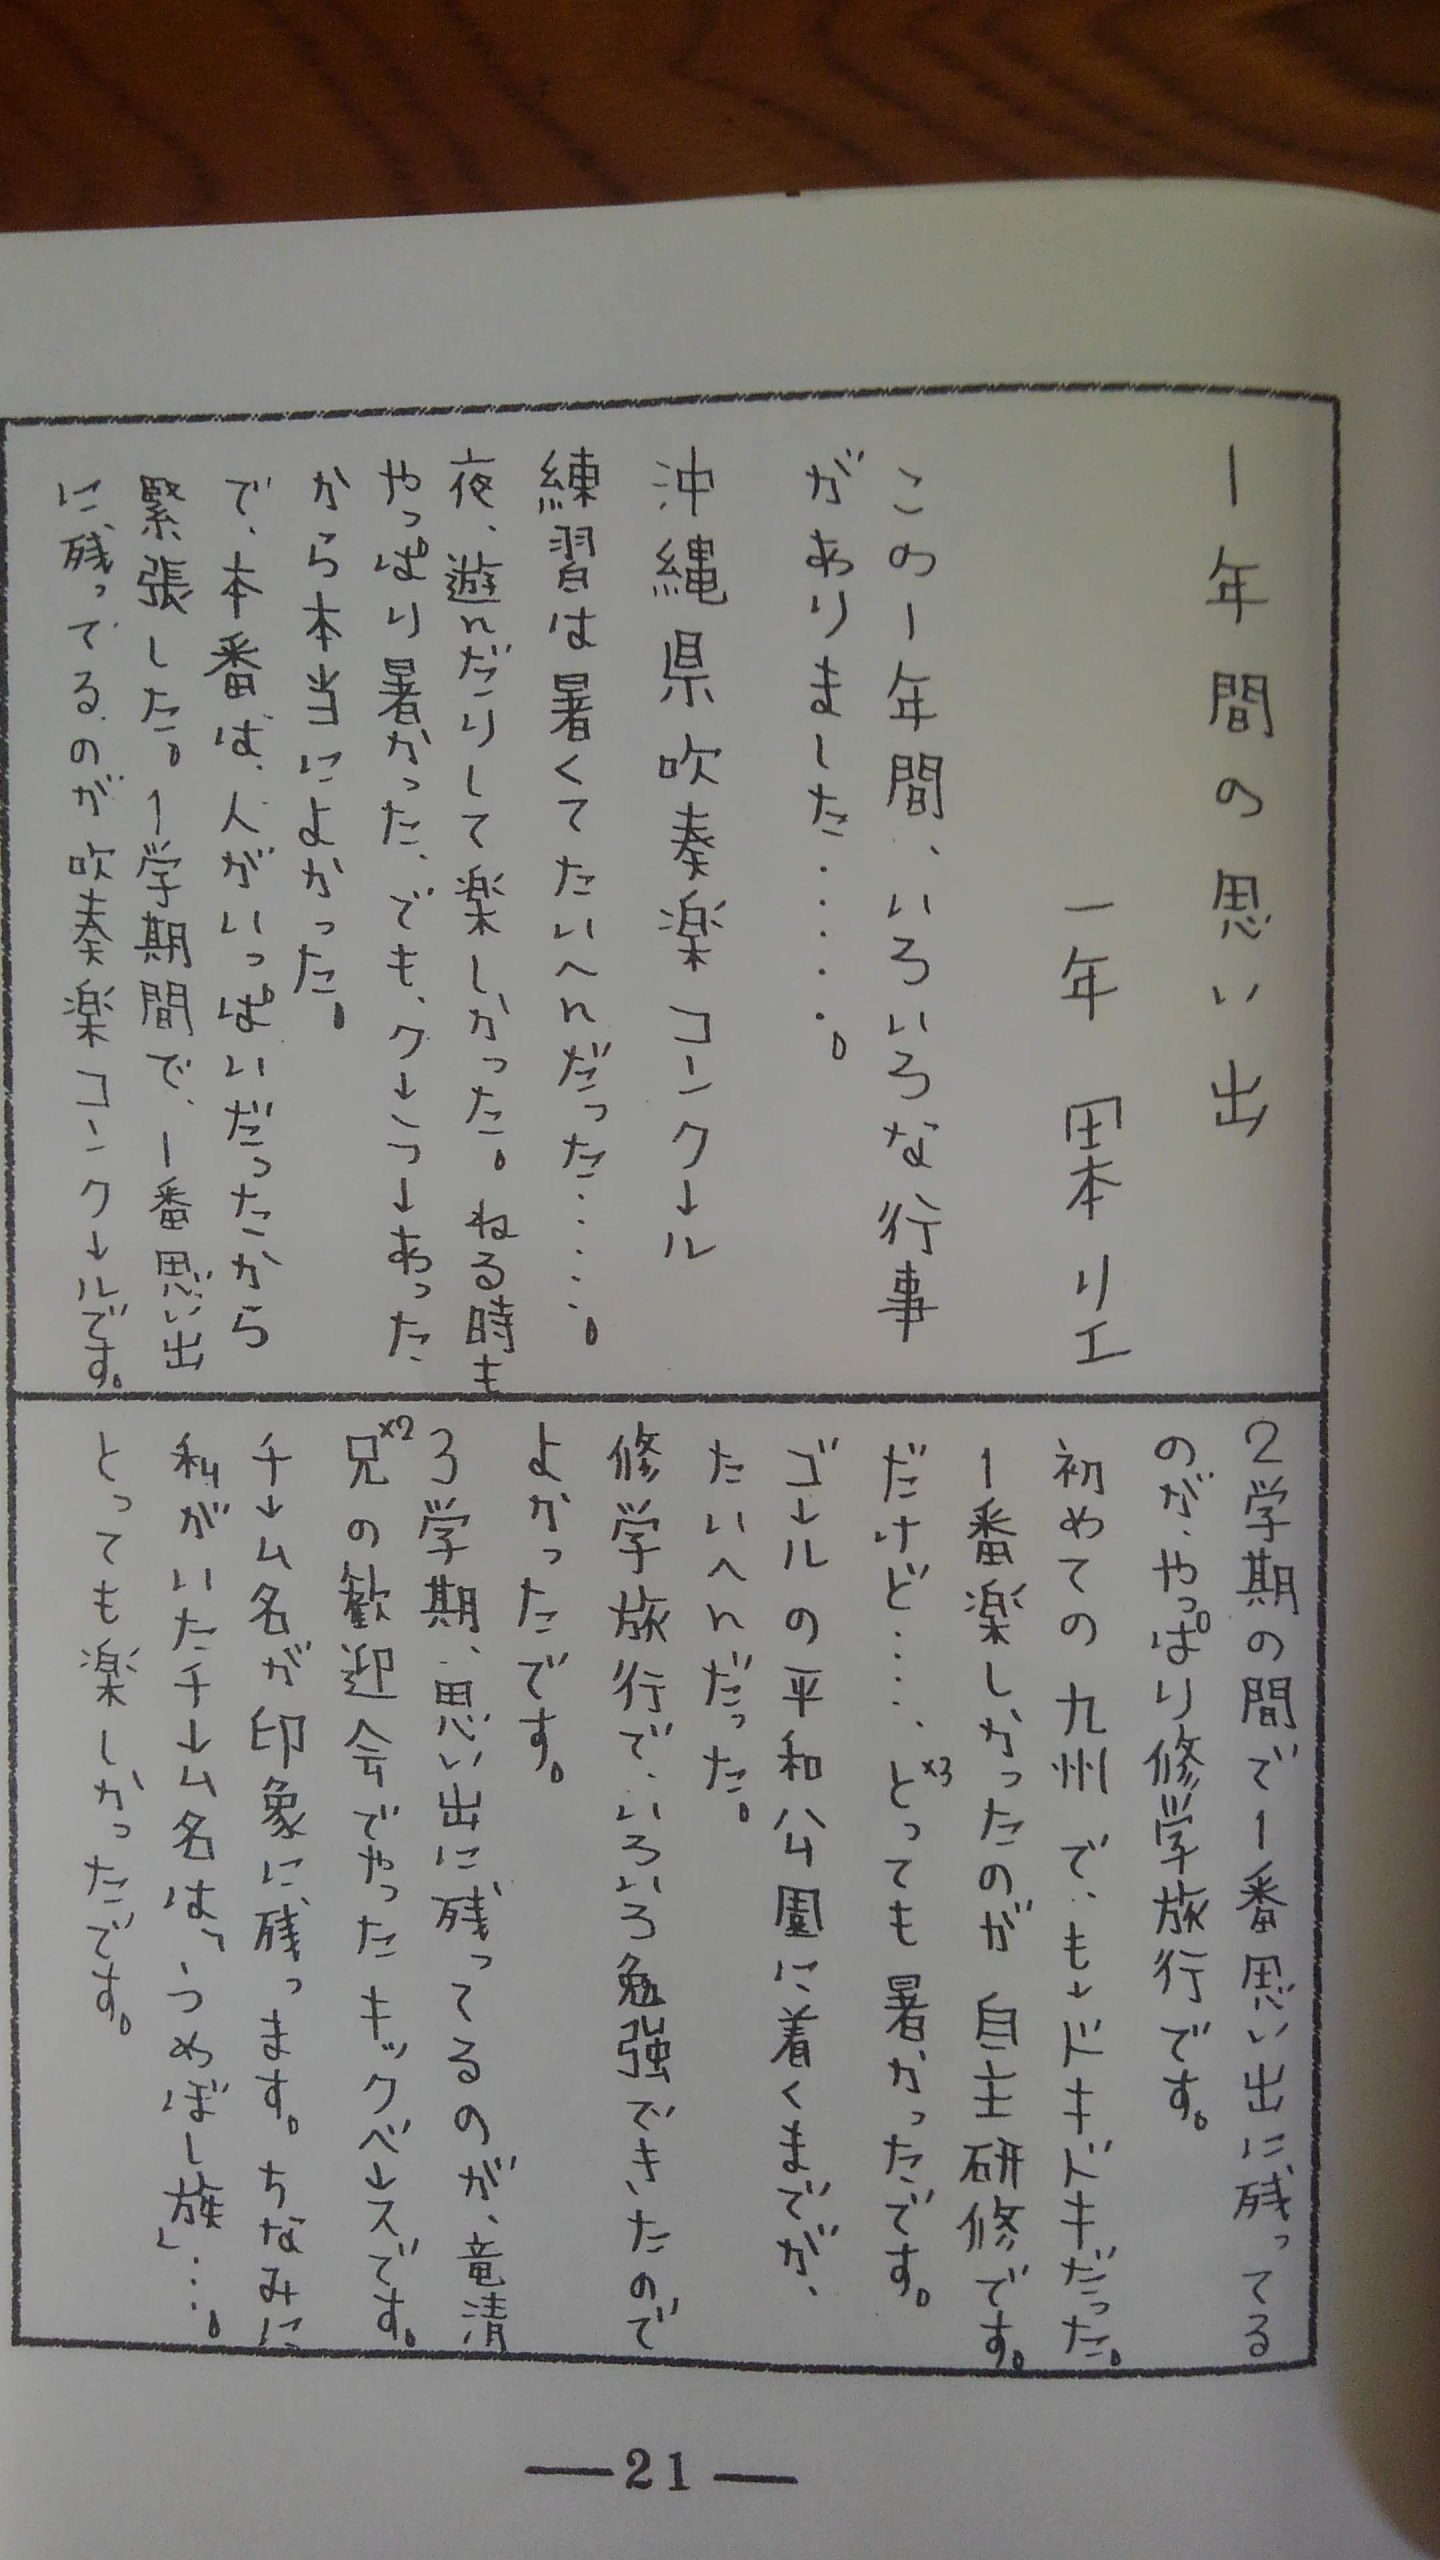 1年間の思い出
一年 田本 リエ
この1年間、いろいろな行事
がありました・・・・・。
沖縄県吹奏楽コンクール
練習は暑くてたいへんだった・・・・・。
夜、遊んだりして楽しかった。ねる時も
やっぱり暑かった、でも、クーラーあった
から本当によかった。
で、本番は、人がいっぱいだったから
緊張した。1学期間で、1番思い出
に残ってるのが吹奏楽コンクールです。
2学期の間で1番思い出に残ってる
のが、やっぱり修学旅行です。
初めての九州で、もードキドキだった。
1番楽しかったのが自主研修です。
だけど・・・・、とっても×3暑かったです。
ゴールの平和公園に着くまでが、
たいへんだった。
修学旅行で、いろいろ勉強できたので
よかったです。
3学期、思い出に残ってるのが、竜清
兄×2の歓迎会でやったキックベースです。
チーム名が印象に残っます。ちなみに
私がいたチーム名は、「うめぼし族」・・・。
とっても楽しかったです。
— 21 —